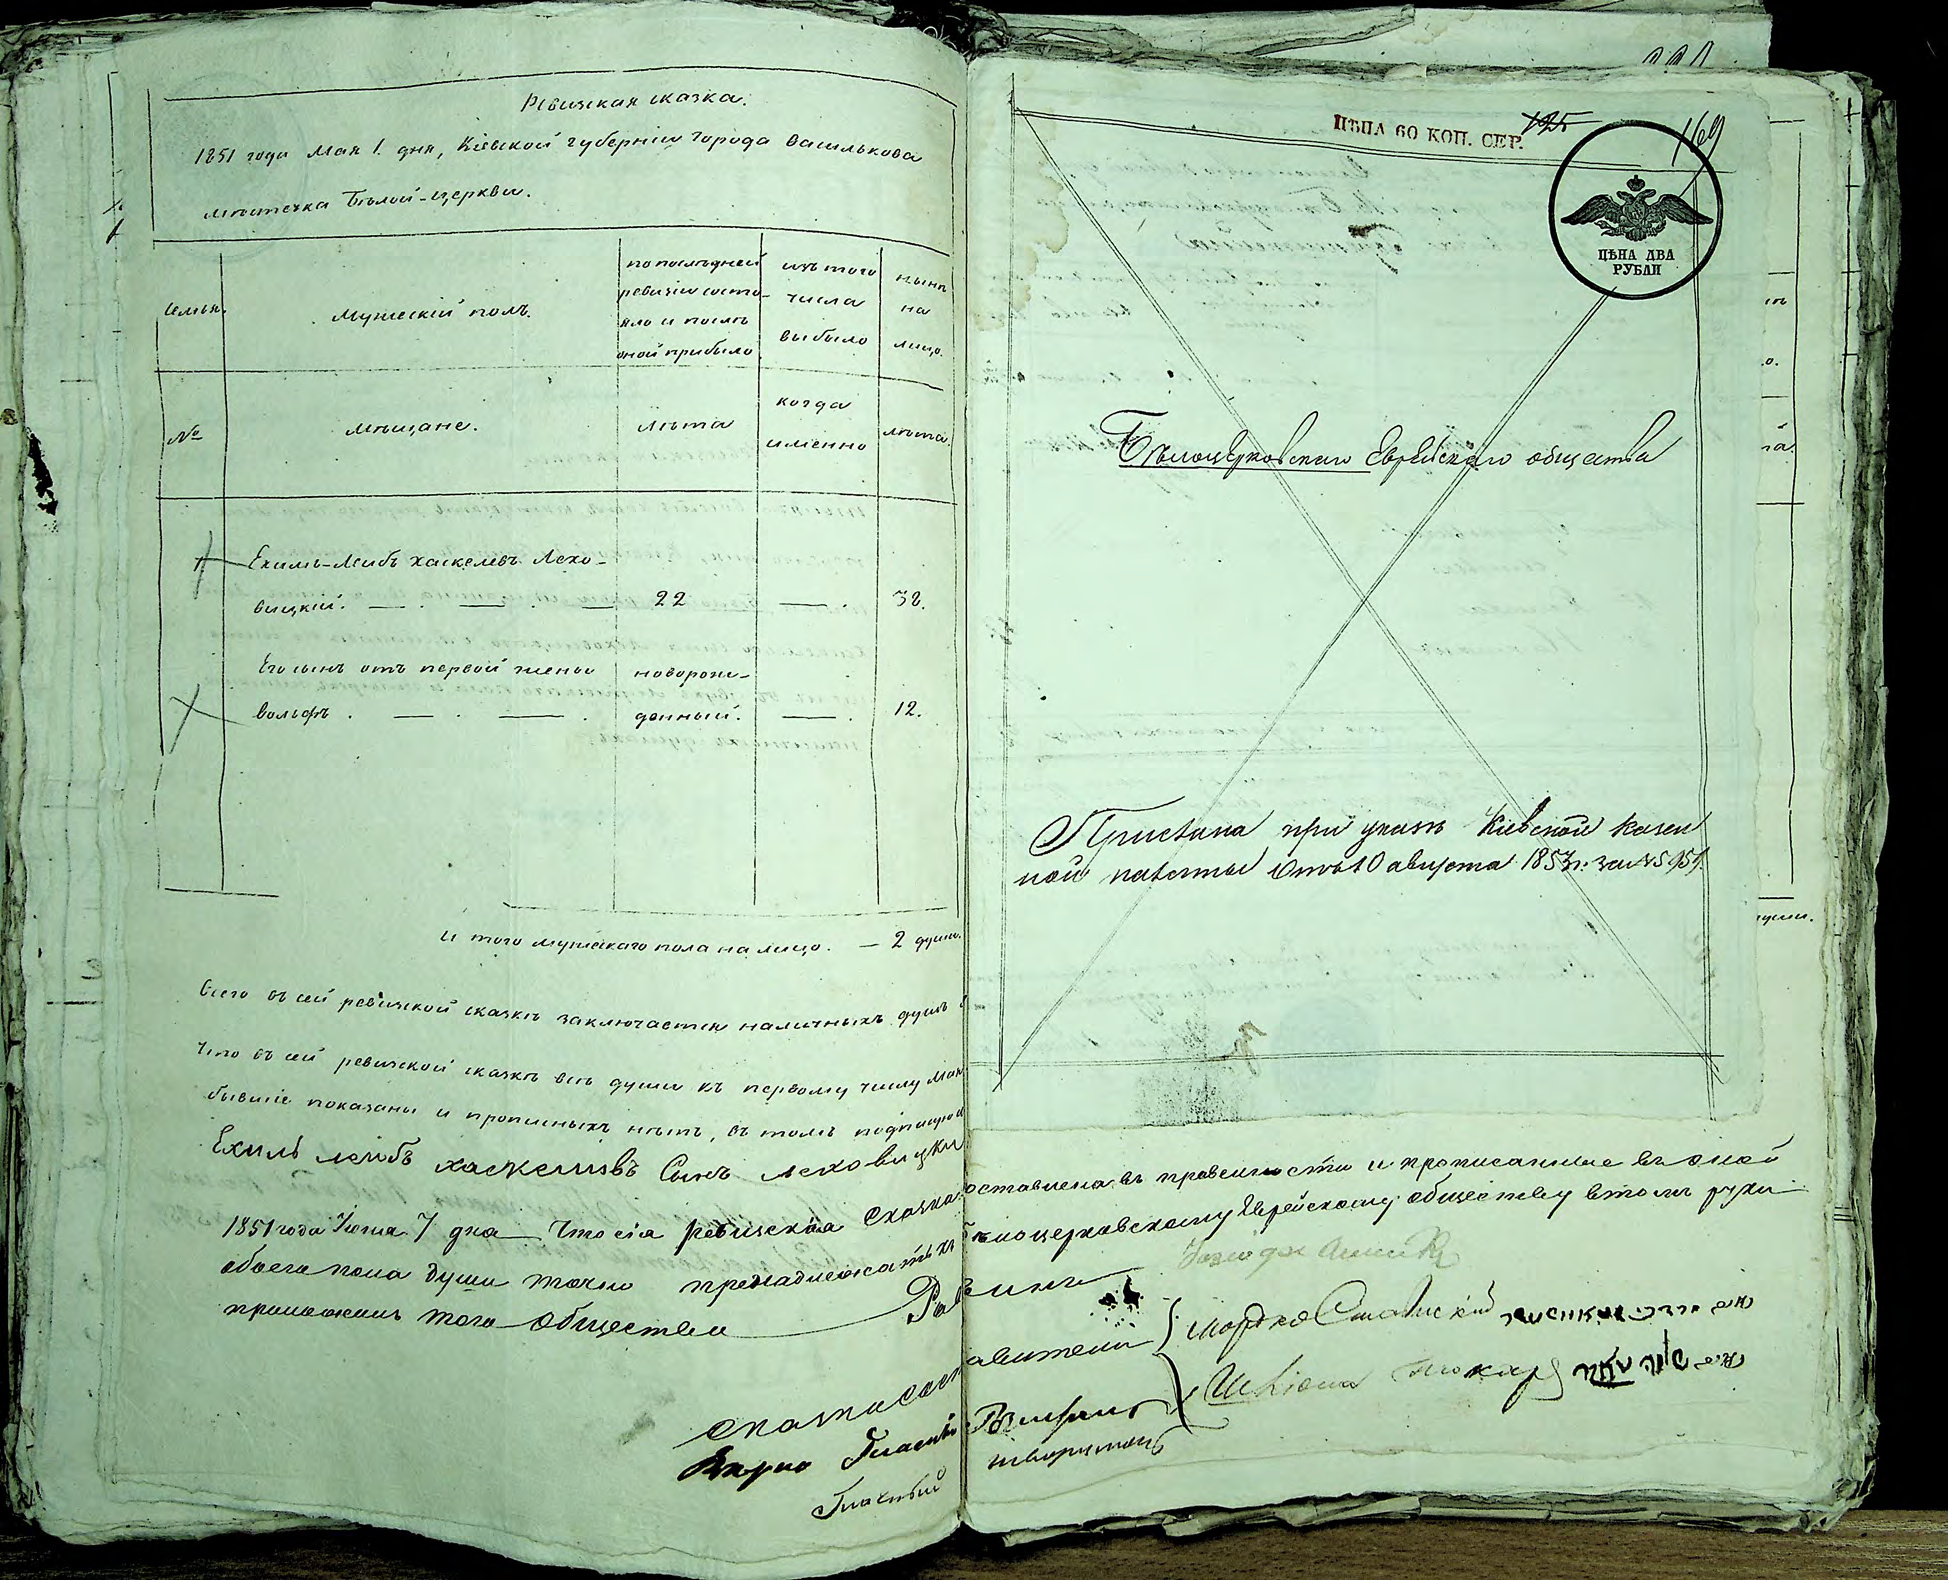 Ревизская сказка.
1851 года Мая 1. дня, Кіевской губерніи города Василькова
мѣстечка Бѣлой-церкви.
Семья.
Мужескій полъ.
по послѣдней
ревизіи состо-
яло и послѣ
оной прибыло
изъ того
числа
выбыло
нынѣ
на
лицо.
№
мѣщане.
лѣта
когда
именно
лѣта.
Ехиль-Лейбъ хаскелевъ Лехо-
вицкій. 22 32.
Его сынъ отъ первой жены новорож-
вольфъ. денный. 12.
И того мужескаго пола на лицо. — 2 души.
Всего въ сей ревизской сказкѣ заключается наличныхъ душъ
Что въ сей ревизской сказкѣ всѣ души къ первому числу Мая
бывшіе показаны и прописныхъ нѣтъ, въ томъ подпис
Ехиль лейбъ хаскеливъ Сынъ леховицки
1851 года 7 дня Что сія ревизская Сказка
составлена въ правености и прописанные въ оной
обоего пола души точно принадлежатъ къ
бѣлоцерковскому Еврейскому обществу въ томъ руки
приложилъ того общества
Равинъ
Сказки Составители
Мордко Ставискій
токарь
Гласный
ЦѢНА 60 КОП. СЕР.
125
169
ЦѢНА ДВА
РУБЛИ
Бѣлоцерковскаго Еврейскаго общества
Прислана при указѣ Кіевской казен
ной палаты отъ 10 августа 1853 г. за №